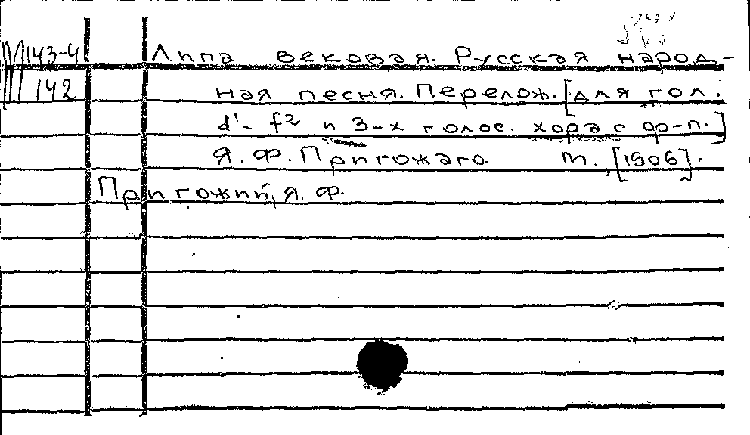 143-4 Липа вековая. Русская народ-
142 ная песня. Перелож. [для гол.
d'- f² и 3-х голос. хора с ф-п.]
Я. Ф. Пригожаго. М., [1906].
Пригожий, Я. Ф.